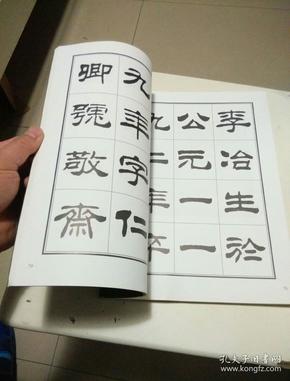 李冶生於
公元一一
九二年卒
九年字仁
卿號敬齋
孔夫子旧书网
www.kongfz.com